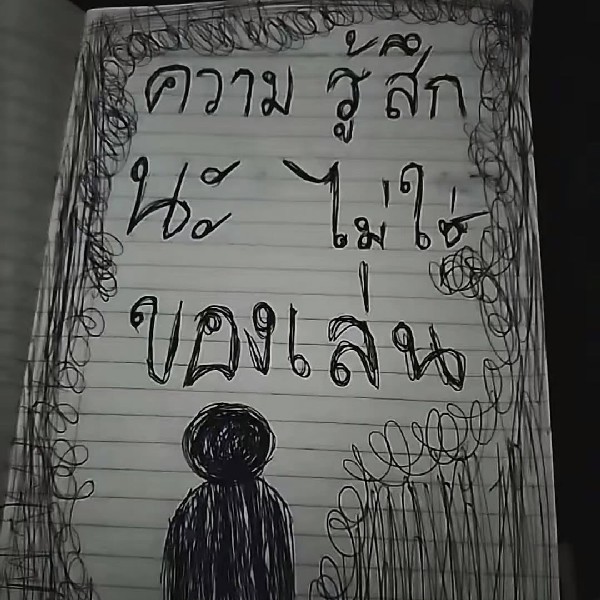 ความ รู้สึก
นะ ไม่ใช่
ของเล่น